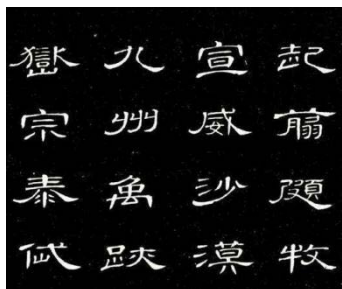 起翦頗牧
宣威沙漠
九州禹跡
嶽宗泰岱